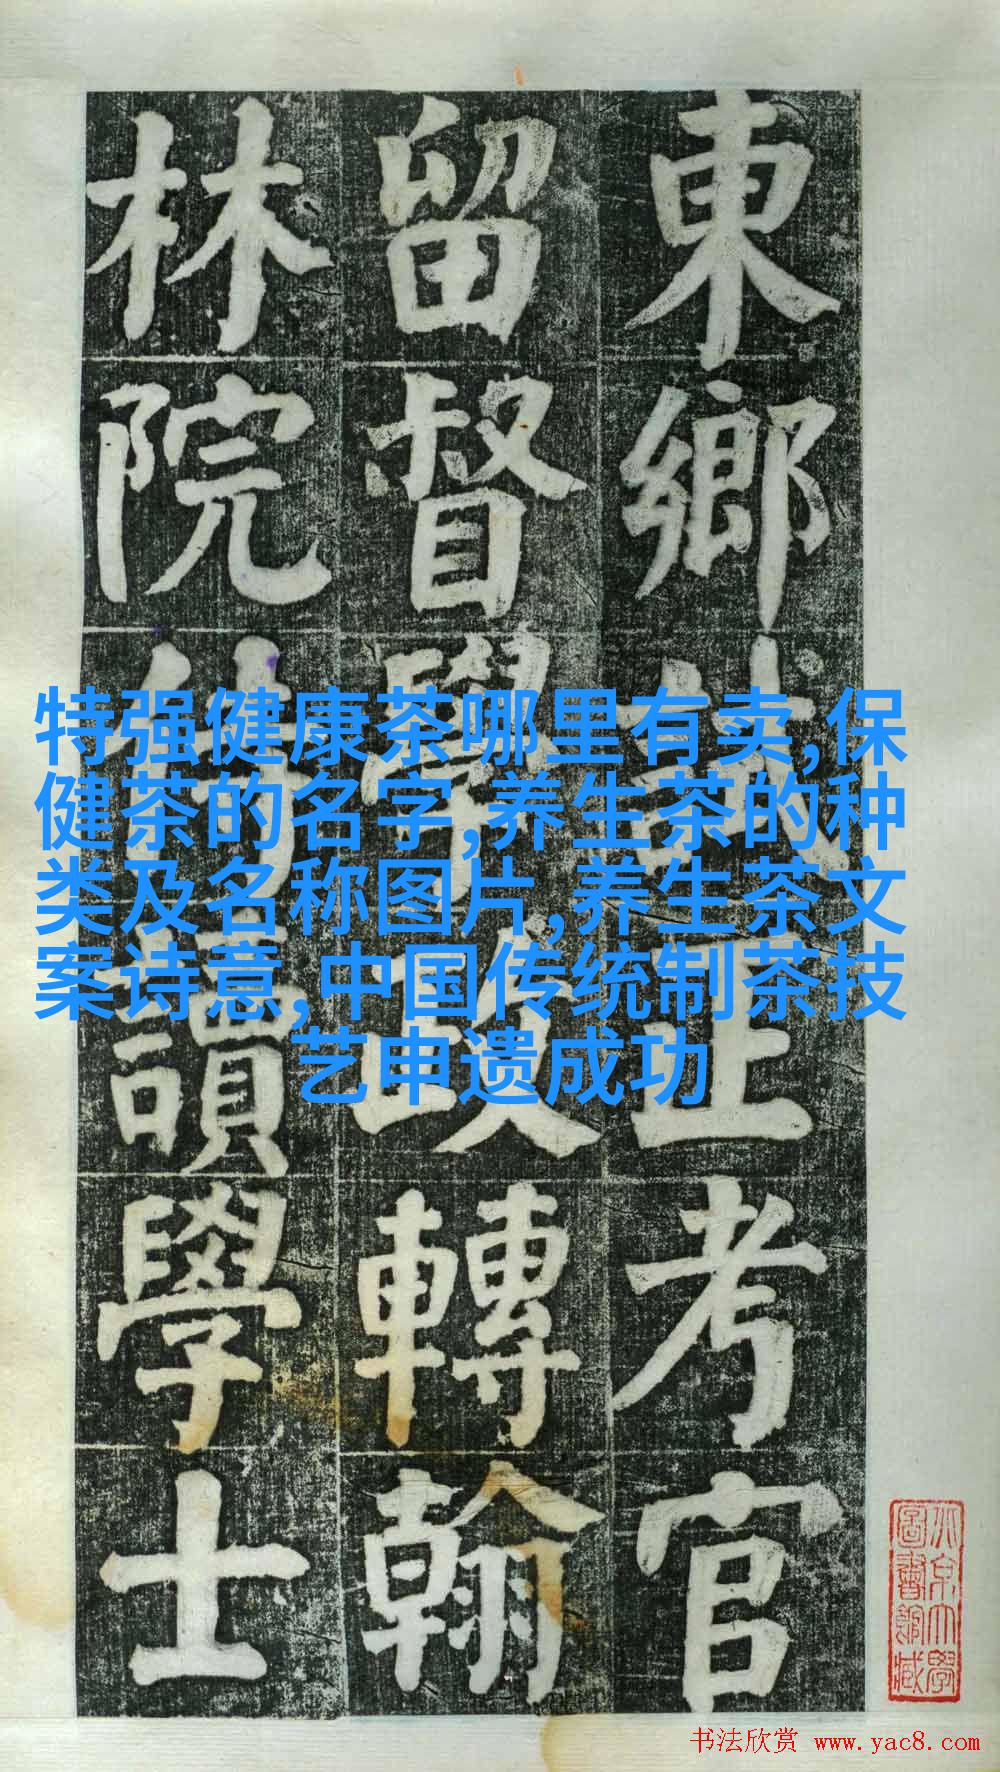 東鄉試正考官
留督學政轉翰
林院侍讀學士
特强健康茶哪里有卖,保
健茶的名字,养生茶的种
类及名称图片,养生茶文
案诗意,中国传统制茶技
艺申遗成功
北京大學
圖書館藏
书法欣赏 www.yac8.com